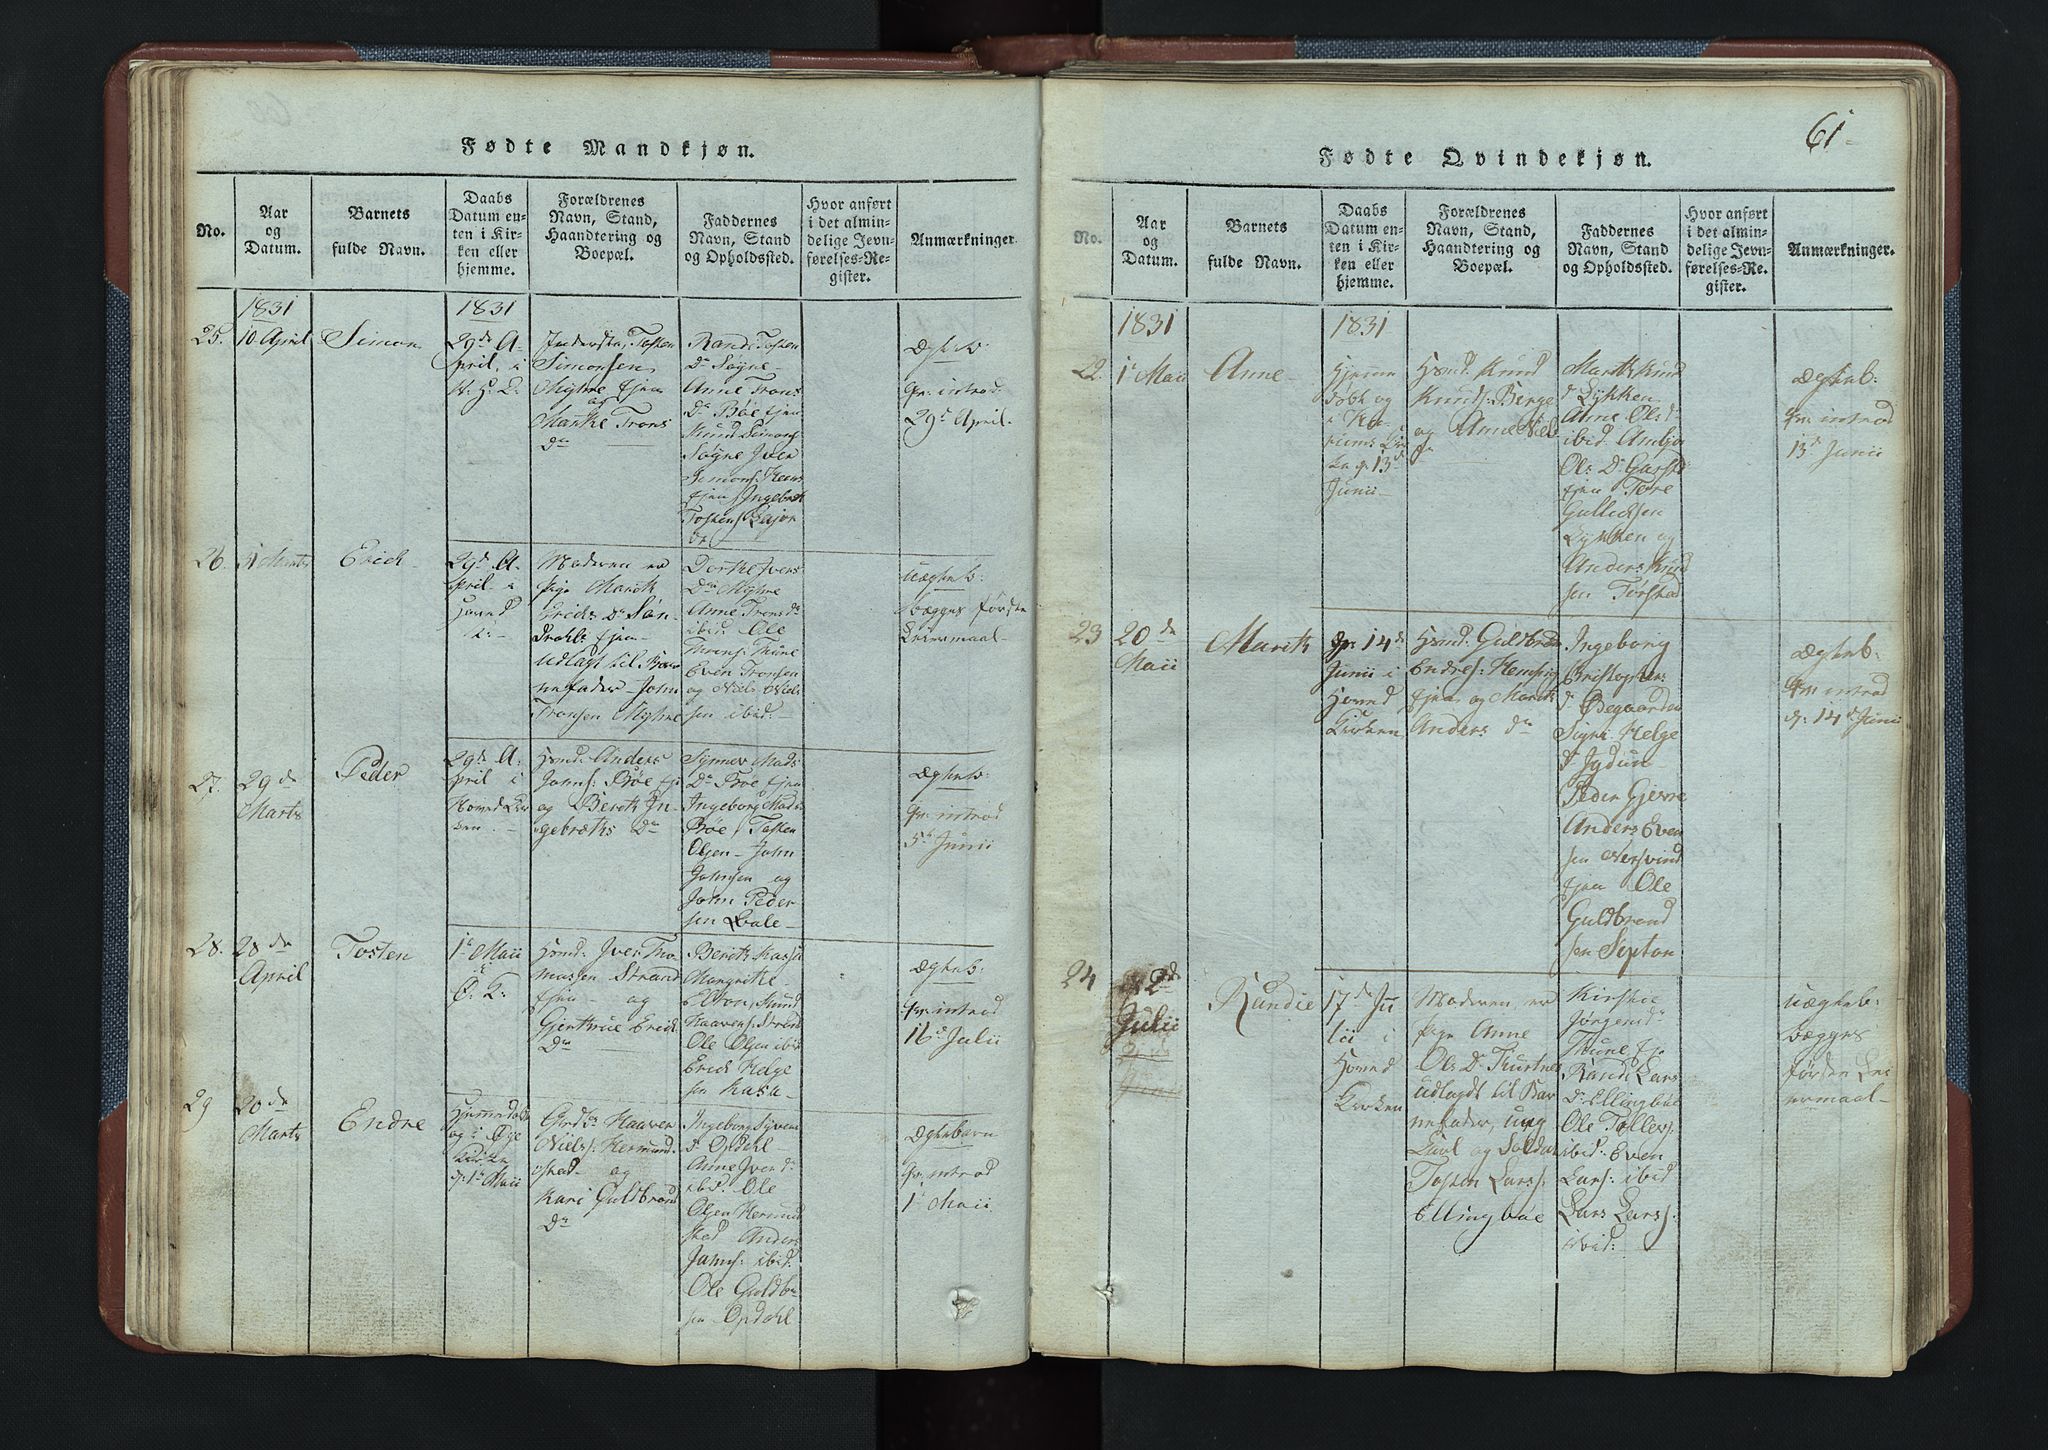 Fødte Mandkjøn.
No.
Aar
og
Datum.
Barnets
fulde Navn.
Daabs
Datum en-
ten i Kir-
ken eller
hjemme.
Forældrenes
Navn, Stand,
Haandtering og
Boepæl.
Faddernes
Navn, Stand
og Opholdssted.
Hvor anført
i det almin-
delige Jevn-
førelses-Re-
gister.
Anmærkninger.
1831
1831
25.
10 April
Simon
29de A-
pril, i
V. H. K.
Tosten
Simonsen
Myhre Ejen
og
Marthe Trons
Dr
Rand: Tosten
Dr Søgne
Anne Trons
Dr Bøe Ejen
Knud Simons.
Søgne Iver
Simons:
Ejen Ingebret
Tostens
ægteb:
qv: introd
29de April.
26.
Marts
Erick
29de A-
pril i
Hoved
K:
Moderen er
pige Marith
Ericks Dr
Ejen
udlagt til Bar-
nefader John
Tronsen Myhre
Dorthe Ivers
Dr Myhre
Anne Tronsdr
ibid. Ole
Even Tronsen
og Niels Niel-
sen ibid:
uægteb:
bægges første
Leiermaal
27.
29de
Marts
Peder
29de A-
pril i
Hoved Kir-
ken.
Hsmd. Anders
Johns: Bøe Ej:
og Berith In-
gebreths Dr
Synnev Mads
Dr Bøe Ejen
Ingeborg Mads
Bøe, Tosten
Olsen John
Johnsen og
John Peder-
sen Bale
ægteb:
qv: introd
5te Junii
28.
28de
April
Tosten
1te Maii
i
Ø. K:
Hsmd. Iver Tho-
massen Strand
Ejen og
Gjertrue Erick
Dr
Berith Kassa
Margrethe
Elton, Knud
Haavens: Strand
Ole Olsen ibid
Erick Helge-
sen Kasa
ægteb:
qv: introd
16de Julii
29
20de
Marts
Endre
Hjemmedøbt
og i Øye
Kirke
1te Maii
Haaven
Niels: Hermund-
stad og
Kari Guldbrand
Dr
Ingeborg Syvers
Dr Opdahl
Anne Ivers d:
ibd. Ole
Olsen Hermund-
stad Anders
Johns: ibid.
Ole Guldbr-
sen Opdahl
ægtebarn
qv: introd
1te Maii
61
Fødte Qvindekjøn.
No.
Aar
og
Datum.
Barnets
fulde Navn.
Daabs
Datum en-
ten i Kir-
ken eller
hjemme.
Forældrenes
Navn, Stand,
Haandtering og
Boepæl.
Faddernes
Navn, Stand
og Opholdssted.
Hvor anført
i det almin-
delige Jevn-
førelses-Re-
gister.
Anmærkninger.
1831
1831
22.
1te Maii
Anne
Hjemme
døbt og
i
13de
Junii
Hsmd. Knud
Knuds: Berge
og Anne Niels
Dr
Marith Knud
Dr Lykken
Anne Olsdr
ibid:
Ols: Dr
Ejen Tore
Gullicksen
Lykken og
Anders Knud-
sen
ægteb:
qv: introd
13de Junii
23
20de
Maii
Marith
14de
Junii i
Hoved
Kirken
Hsmd. Guldbrand
Endres: Hemsing
Ejen og Marith
Anders Dr
Ingeborg
Cristopher
Dr Ødegaarden
Sigri Helge
Dr
Peder Gjerre
Anders Even-
sen
Ejen Ole
Guldbrand-
sen
ægteb:
qv: introd
14de Junii
24
2de
Julii
Randie
17de Ju-
lii i
Hoved
Kirken
Moderen er
pige Anne
Ols: Dr
udlagdt til Bar-
nefader, ung
Karl og Soldat
Tosten Lars:
Ellingbøe
Kirstie
Jørgensdr
Thune Ej:
Randi Lars
Dr Ellingbøe
Ole Tollefs:
ibid: Even
Lars: ibid
Lars Lars:
ibid:
uægteb:
bægges
første Lei-
ermaal